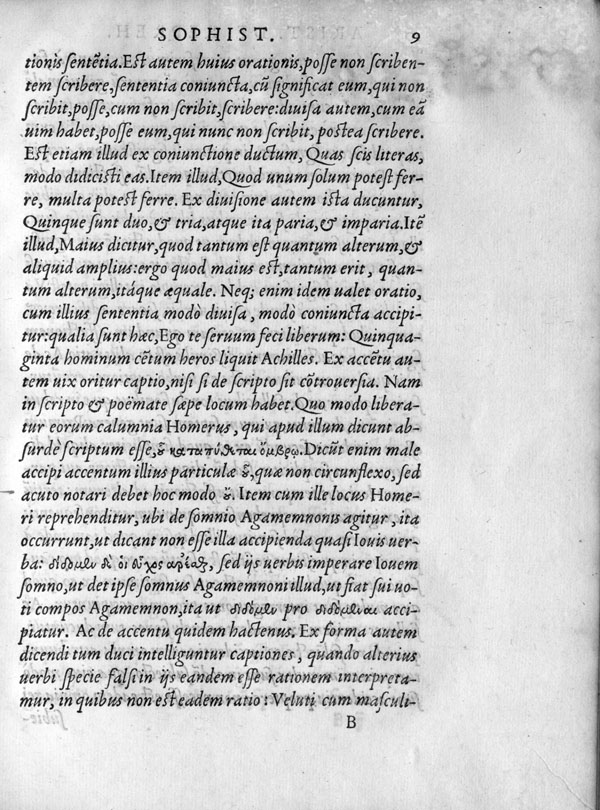 SOPHIST. 9
tionis sentētia. Est autem huius orationis, posse non scriben-
tem scribere, sententia coniuncta, cū significat eum, qui non
scribit, posse, cum non scribit, scribere: diuisa autem, cum eā
uim habet, posse eum, qui nunc non scribit, postea scribere.
Est etiam illud ex coniunctione ductum, Quas scis literas,
modo didicisti eas. Item illud, Quod unum solum potest fer-
re, multa potest ferre. Ex diuisione autem ista ducuntur,
Quinque sunt duo, & tria, atque ita paria, & imparia. Itē
illud, Maius dicitur, quod tantum est quantum alterum, &
aliquid amplius: ergo quod maius est, tantum erit, quan-
tum alterum, itáque æquale. Neq; enim idem ualet oratio,
cum illius sententia modò diuisa, modò coniuncta accipi-
tur: qualia sunt hæc, Ego te seruum feci liberum: Quinqua-
ginta hominum cētum heros liquit Achilles. Ex accētu au-
tem uix oritur captio, nisi si de scripto sit cōtrouersia. Nam
in scripto & poëmate sæpe locum habet. Quo modo libera-
tur eorum calumnia Homerus, qui apud illum dicunt ab-
surdè scriptum esse, οὗ καταπύθεται ὄμβρῳ. Dicūt enim male
accipi accentum illius particulæ οὗ, quæ non circunflexo, sed
acuto notari debet hoc modo οὔ. Item cum ille locus Home-
ri reprehenditur, ubi de somnio Agamemnonis agitur, ita
occurrunt, ut dicant non esse illa accipienda quasi Iouis uer-
ba: δίδομεν δέ οἱ εὖχος ἀρέσθαι, sed ijs uerbis imperare Iouem
somno, ut det ipse somnus Agamemnoni illud, ut fiat sui uo-
ti compos Agamemnon, ita ut δίδομεν pro διδόμεναι acci-
piatur. Ac de accentu quidem hactenus. Ex forma autem
dicendi tum duci intelliguntur captiones, quando alterius
uerbi specie falsi in ijs eandem esse rationem interpreta-
mur, in quibus non est eadem ratio: Veluti cum masculi-
B